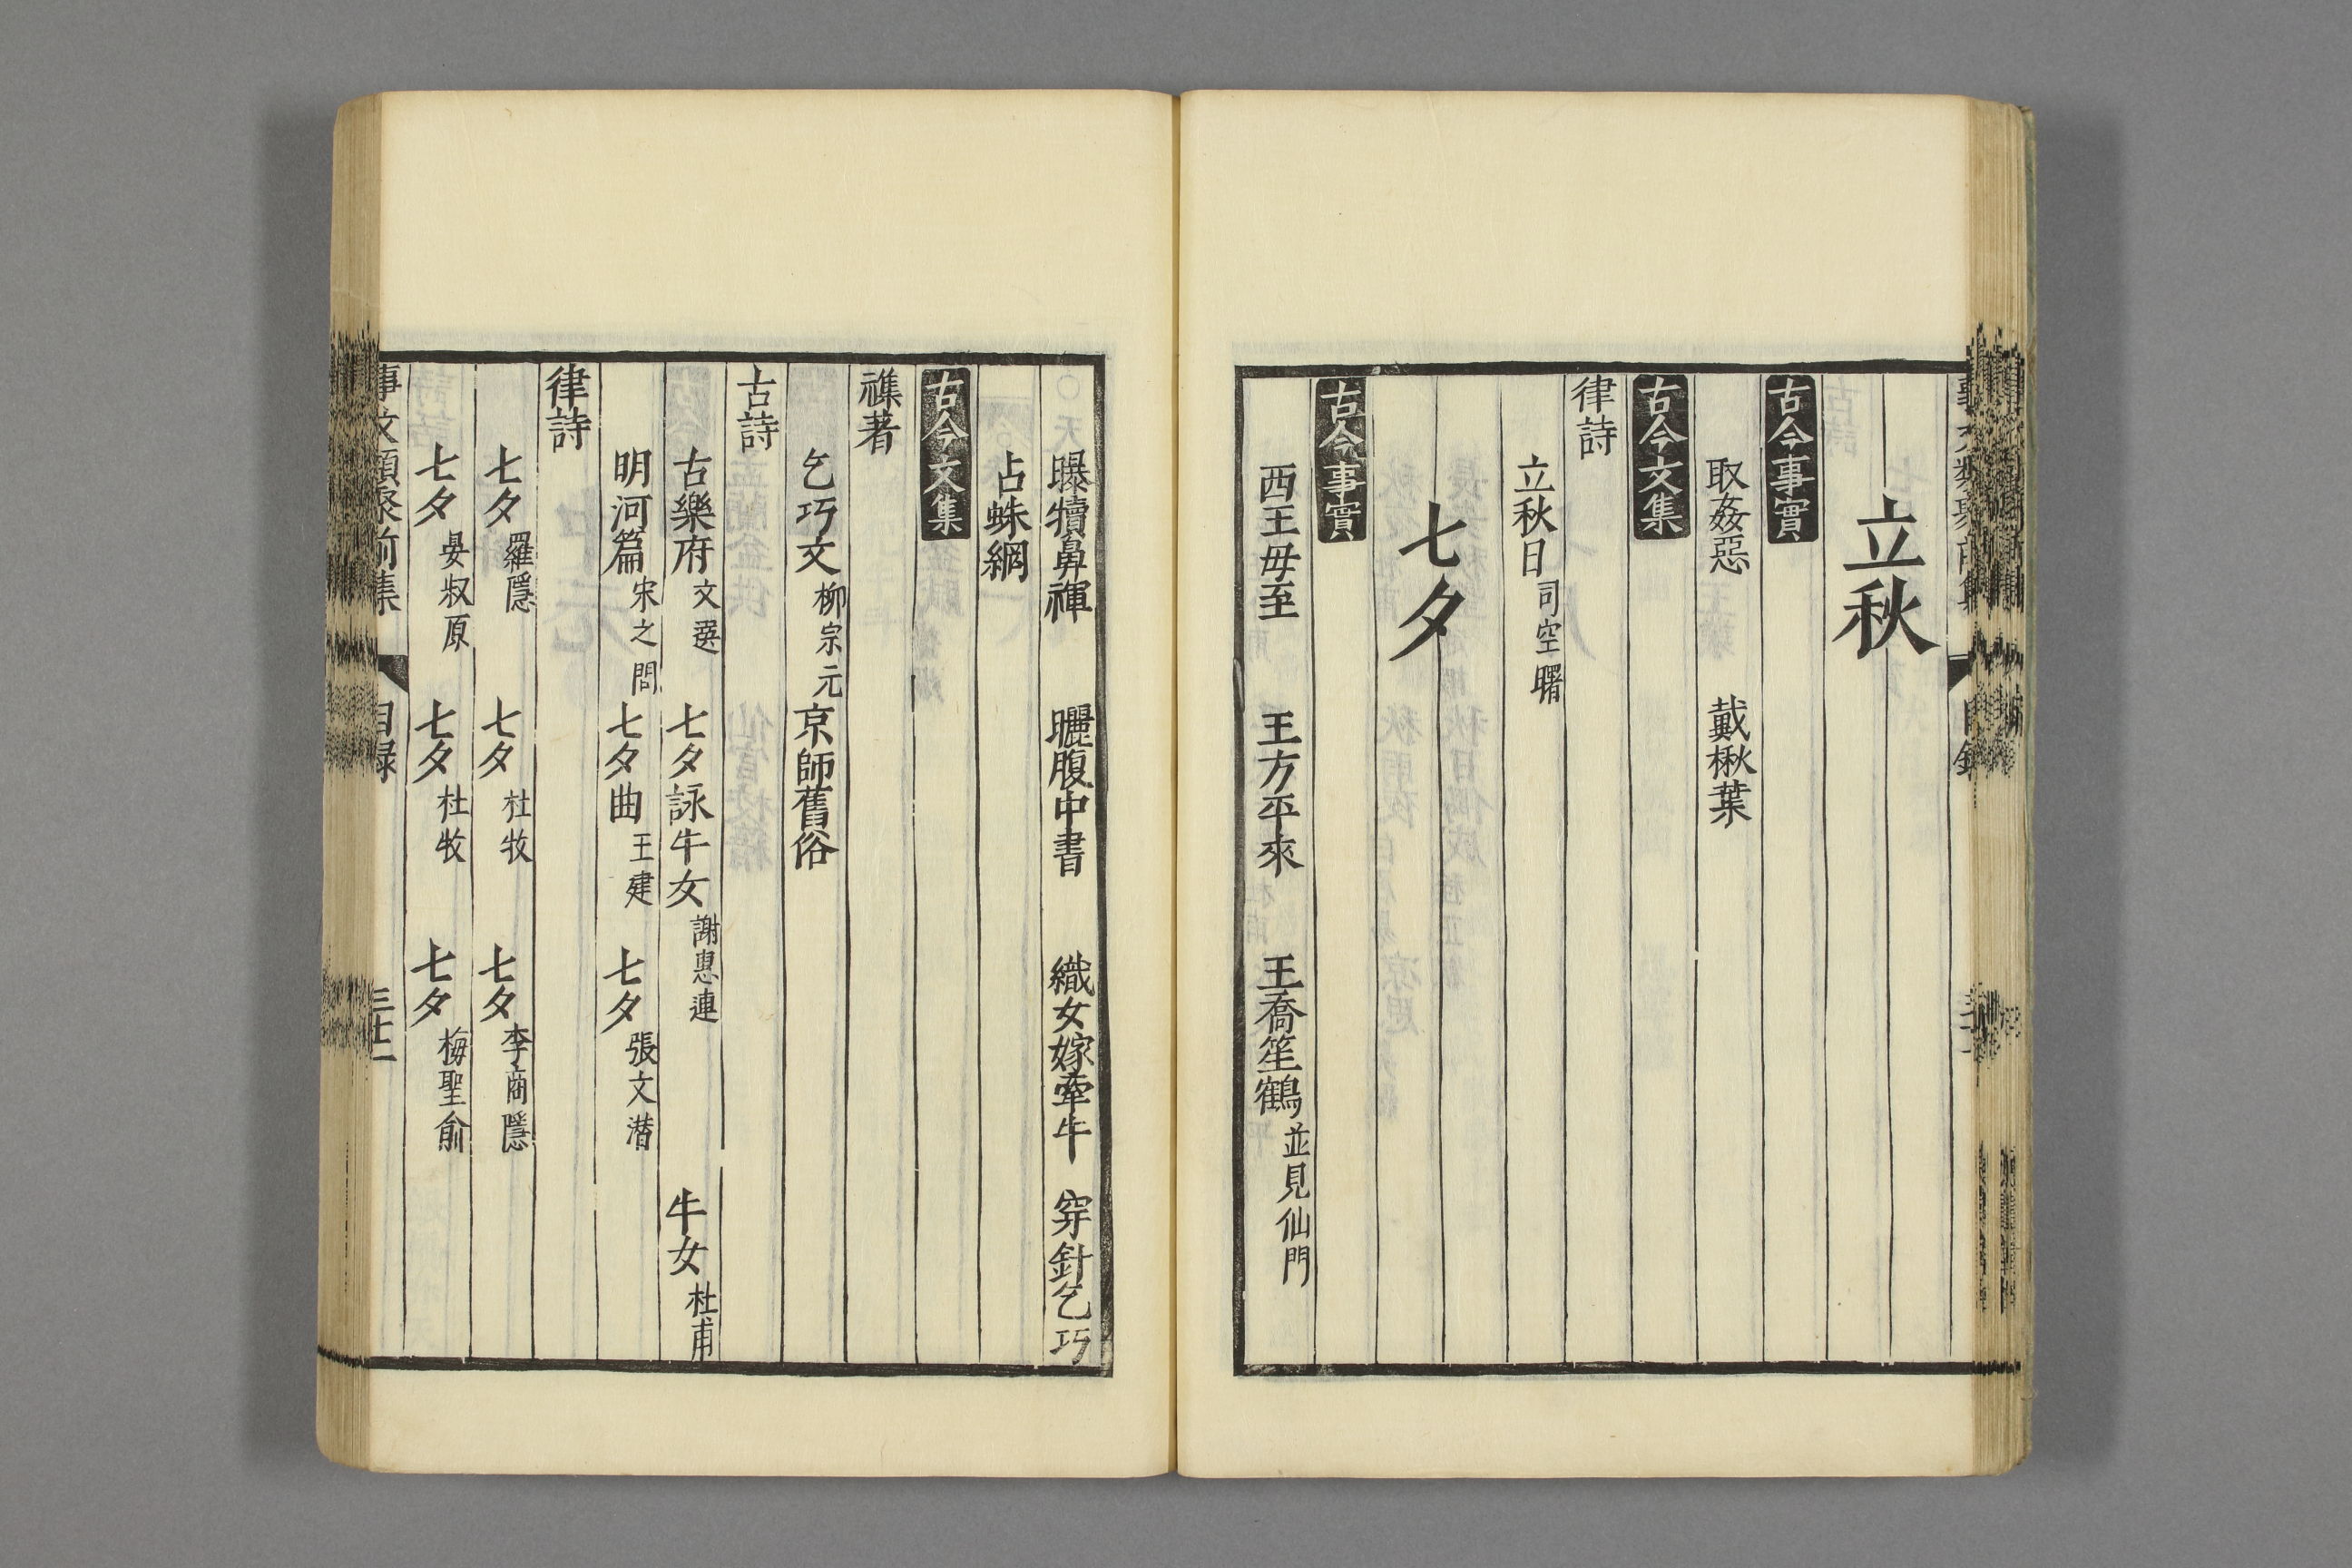 立秋
古今事實
取姦惡　戴楸葉
古今文集
律詩
立秋日司空曙
七夕
古今事實
西王母至　王方平來　王喬笙鶴並見仙門
曝犢鼻褌　曬腹中書　織女嫁牽牛　穿針乞巧
占蛛網
古今文集
襍著
乞巧文柳宗元　京師舊俗
古詩
古樂府文選　七夕詠牛女謝惠連　牛女杜甫
明河篇宋之問　七夕曲王建　七夕張文潛
律詩
七夕羅隱　七夕杜牧　七夕李商隱
七夕晏叔原　七夕杜牧　七夕梅聖俞
事文類聚前集　目録